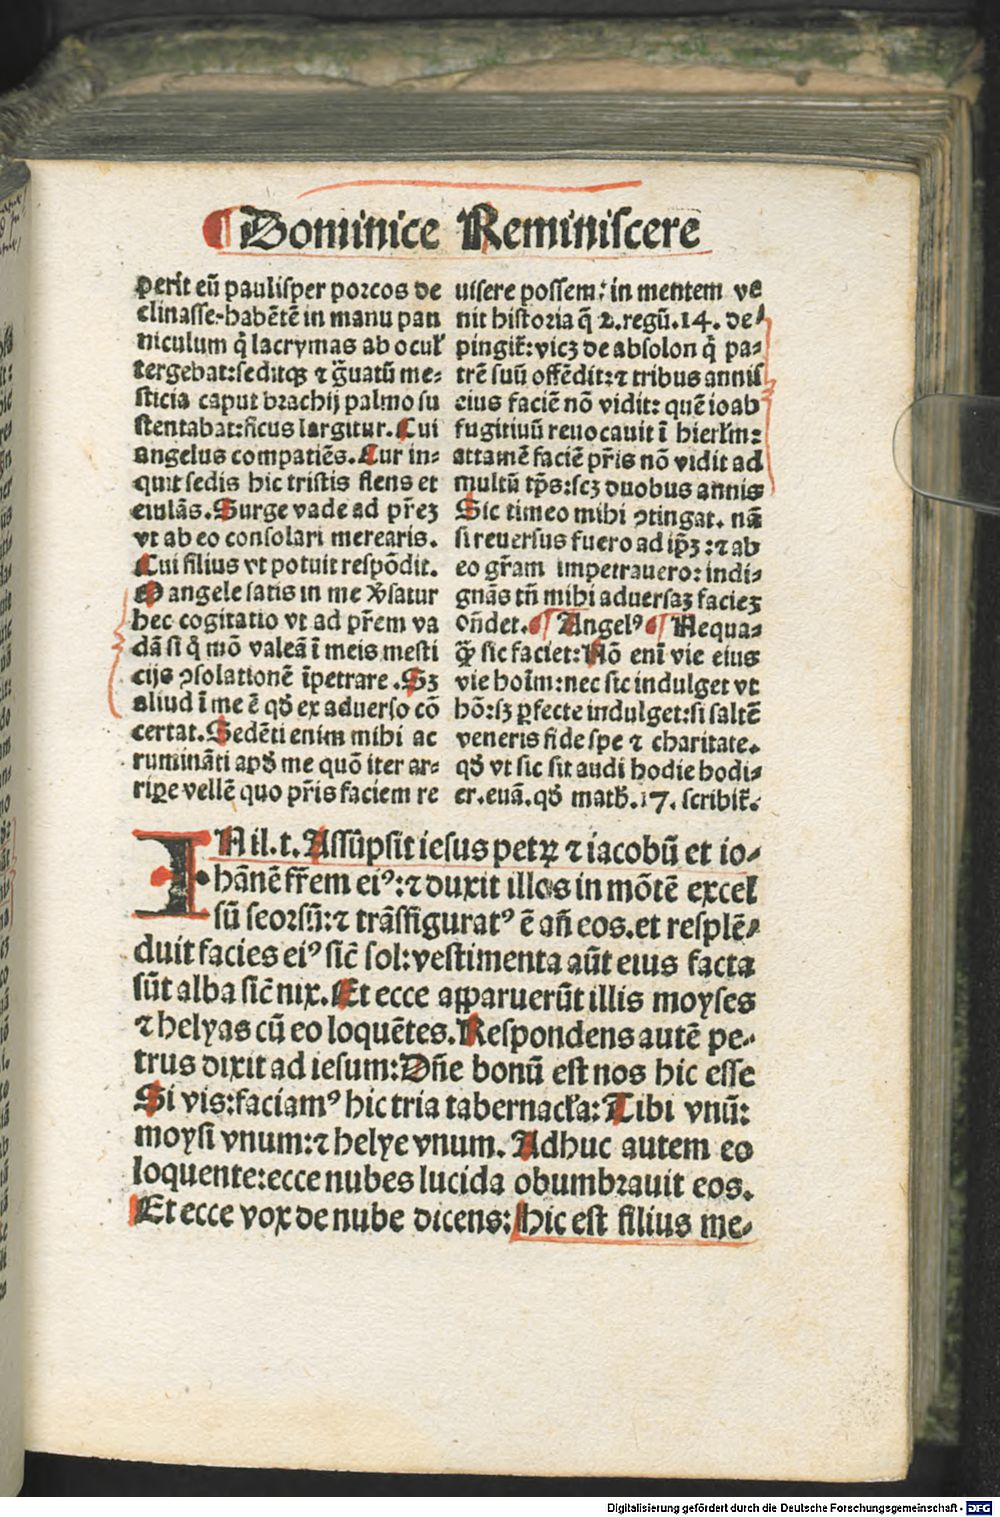 ¶ Dominice Reminiscere
perit eū paulisper porcos de
clinasse. habētē in manu pan
niculum q̄ lacrymas ab ocul̛
tergebat: seditqꝫ ⁊ g̈uatū me⸗
sticia caput brachij palmo su
stentabat: ficus largitur. Cui
angelus compatiēs. Cur in⸗
quit sedis hic tristis flens et
eiulās. Surge vade ad pr̄eꝫ
vt ab eo consolari merearis.
Cui filius vt potuit respōdit.
O angele satis in me v̛satur
hec cogitatio vt ad pr̄em va
dā si q̊ mō valeā ī meis mesti
cijs ꝯsolationē īpetrare. Sꝫ
aliud ī me ē qđ ex aduerso cō
certat. Sedēti enim mihi ac
rumināti apđ me quō iter ar⸗
ripe vellē quo pr̄is faciem re
uisere possem: in mentem ve
nit historia q̄ 2. regū. 14. de⸗
pingit̛: vicꝫ de absolon q̄ pa⸗
trē suū offēdit: ⁊ tribus annis
eius faciē nō vidit: quē ioab
fugitiuū reuocauit ī hierl̄m:
attamē faciē pr̄is nō vidit ad
multū tp̄s: scꝫ duobus annis
Sic timeo mihi ꝯtingat. nā
si reuersus fuero ad ip̄ꝫ: ⁊ ab
eo gr̄am impetrauero: indi⸗
gnās tn̄ mihi aduersaꝫ facieꝫ
on̄det. ¶ Angelꝰ ¶ Nequa⸗
q̄ꝫ sic faciet: Nō enī vie eius
vie hoīm: nec sic indulget vt
hō: sꝫ ꝑfecte indulget: si saltē
veneris fide spe ⁊ charitate.
qđ vt sic sit audi hodie hodi⸗
er. euā. qđ math̄. 17. scribit̛.
IN il. t. Assūpsit iesus petꝝ ⁊ iacobū et io⸗
hānē fr̄em eiꝰ: ⁊ duxit illos in mōtē excel
sū seorsū: ⁊ trāsfiguratꝰ ē an̄ eos. et resplē⸗
duit facies eiꝰ sic̄ sol: vestimenta aūt eius facta
sūt alba sic̄ nix. Et ecce apparuerūt illis moyses
⁊ helyas cū eo loquētes. Respondens autē pe⸗
trus dixit ad iesum: Dn̄e bonū est nos hic esse
Si vis: faciamꝰ hic tria tabernacl̛a: Tibi vnū:
moysi vnum: ⁊ helye vnum. Adhuc autem eo
loquente: ecce nubes lucida obumbrauit eos.
Et ecce vox de nube dicens: hic est filius me⸗
Digitalisierung gefördert durch die Deutsche Forschungsgemeinschaft - DFG